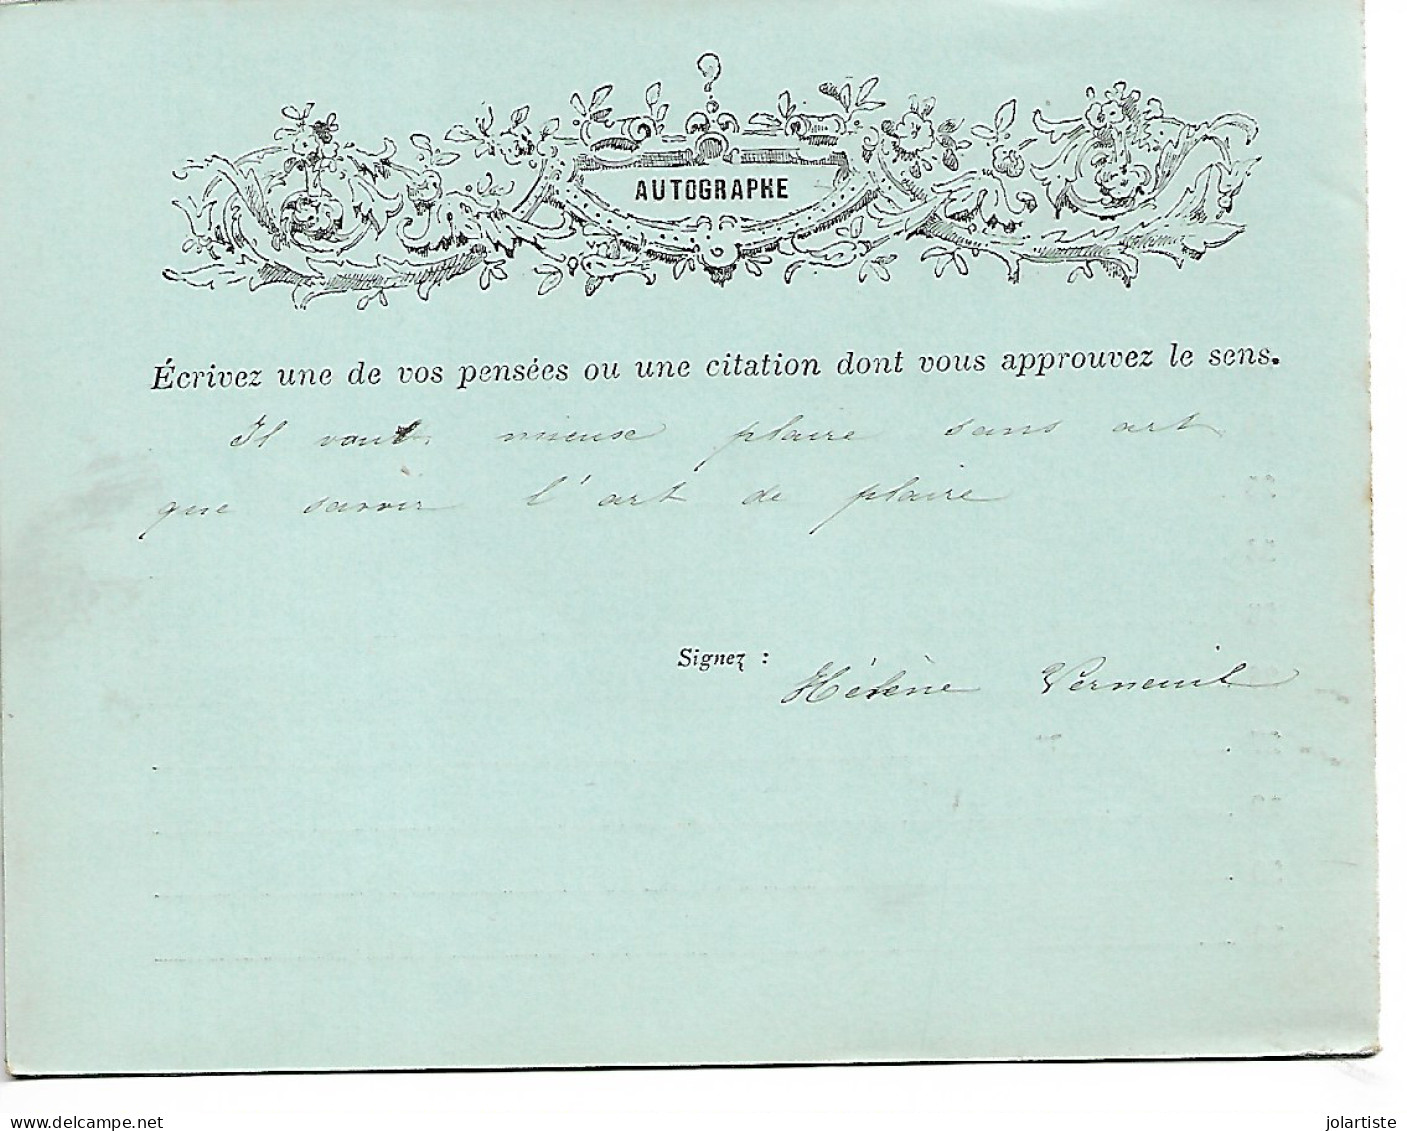 ?
AUTOGRAPHE
Écrivez une de vos pensées ou une citation dont vous approuvez le sens.
Il vaut mieux plaire sans art
que savoir l'art de plaire
Signez :
Hélène Verneuil
www.delcampe.net
jolartiste